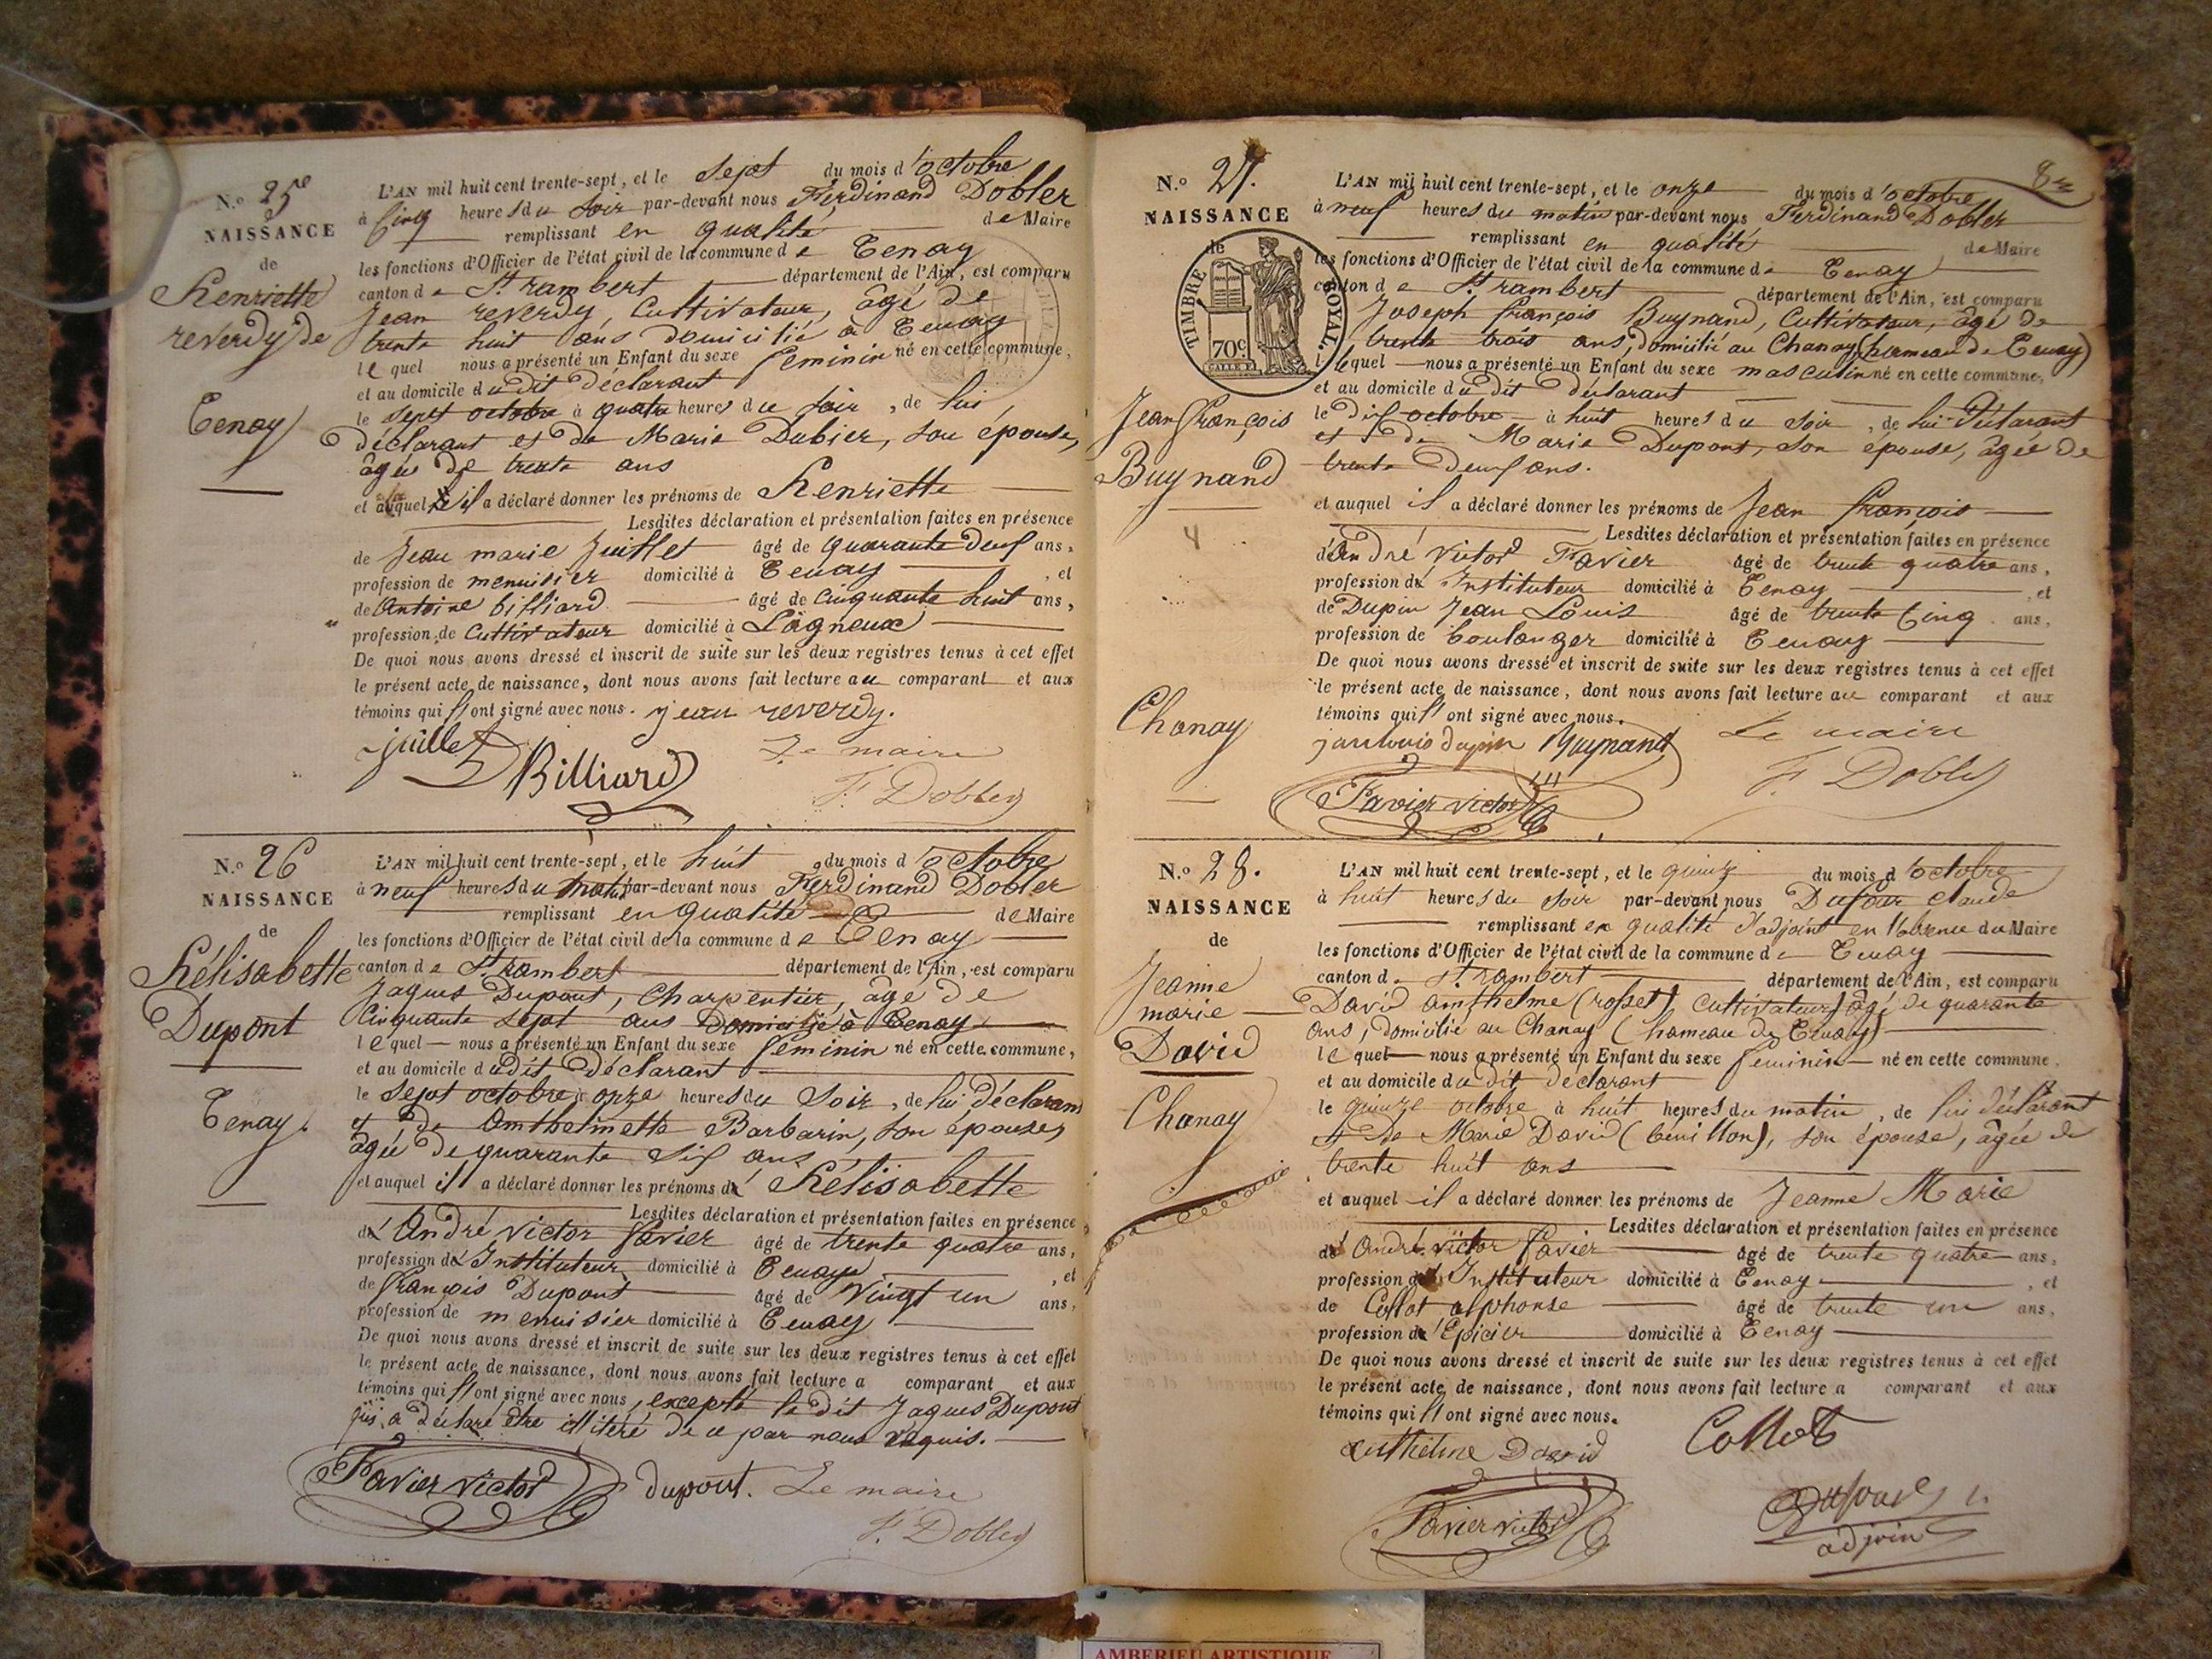 N.º 25
NAISSANCE
de
henriette
reverdy de
Tenay
L'AN mil huit cent trente-sept, et le sept du mois d'octobre
à cinq heures du soir par-devant nous Ferdinand Dobler
remplissant en qualité de Maire
les fonctions d'Officier de l'état civil de la commune de Tenay
canton de St rambert département de l'Ain, est comparu
Jean reverdy, Cultivateur, âgé de
trente huit ans domicilié à Tenay
lequel nous a présenté un Enfant du sexe feminin né en cette commune,
et au domicile dudit déclarant
le sept octobre à quatre heures du soir, de lui
déclarant et de Marie Dubier, son épouse,
âgée de trente ans
et à laquelle il a déclaré donner les prénoms de henriette
Lesdites déclaration et présentation faites en présence
de Jean marie Juillet âgé de quarante deux ans,
profession de menuisier domicilié à Tenay, et
de Antoine billiard âgé de cinquante huit ans,
profession de Cultivateur domicilié à Lagneux
De quoi nous avons dressé et inscrit de suite sur les deux registres tenus à cet effet
le présent acte de naissance, dont nous avons fait lecture au comparant et aux
témoins qui ont signé avec nous. jean reverdy.
juillet Billiard Le maire
F. Dobler
N.º 26
NAISSANCE
de
hélisabette
Dupont
Tenay
L'AN mil huit cent trente-sept, et le huit du mois d'octobre
à neuf heures du matin par-devant nous Ferdinand Dobler
remplissant en qualité de Maire
les fonctions d'Officier de l'état civil de la commune de Tenay
canton de St rambert département de l'Ain, est comparu
Jaques Dupont, Charpentier, âgé de
cinquante sept ans domicilié à Tenay
lequel nous a présenté un Enfant du sexe feminin né en cette commune,
et au domicile dudit déclarant
le sept octobre à onze heures du soir, de lui déclarant
et de Amthelmette Barbarin, son épouse,
âgée de quarante six ans
et auquel il a déclaré donner les prénoms d'hélisabette
Lesdites déclaration et présentation faites en présence
d'André victor favier âgé de trente quatre ans,
profession d'Instituteur domicilié à Tenay, et
de françois Dupont âgé de vingt un ans,
profession de menuisier domicilié à Tenay
De quoi nous avons dressé et inscrit de suite sur les deux registres tenus à cet effet
le présent acte de naissance, dont nous avons fait lecture a comparant et aux
témoins qui ont signé avec nous, excepté le dit Jaques Dupont
qui a déclaré être illitéré de ce par nous réquis.
Favier victor dupont. Le maire
F. Dobler
8
N.º 27.
NAISSANCE
de
TIMBRE ROYAL.
70 c.
Jean françois
Buynand
4
Chanay
L'AN mil huit cent trente-sept, et le onze du mois d'octobre
à neuf heures du matin par-devant nous Ferdinand Dobler
remplissant en qualité de Maire
les fonctions d'Officier de l'état civil de la commune de Tenay
canton de St rambert département de l'Ain, est comparu
Joseph françois Buynand, Cultivateur, âgé de
trente trois ans, domicilié au Chanay (hameau de Tenay)
lequel nous a présenté un Enfant du sexe masculin né en cette commune,
et au domicile du dit déclarant
le dix octobre à huit heures du soir, de lui Déclarant
et de Marie Dupont, son épouse, âgée de
trente deux ans.
et auquel il a déclaré donner les prénoms de Jean françois
Lesdites déclaration et présentation faites en présence
d'André victor Favier âgé de trente quatre ans,
profession de Instituteur domicilié à Tenay, et
de Dupin Jean Louis âgé de trente cinq ans,
profession de boulanger domicilié à Tenay
De quoi nous avons dressé et inscrit de suite sur les deux registres tenus à cet effet
le présent acte de naissance, dont nous avons fait lecture au comparant et aux
témoins qui ont signé avec nous.
jean louis dupin Buynand Le maire
Favier victor F. Dobler
N.º 28.
NAISSANCE
de
Jeanne
marie
David
Chanay
L'AN mil huit cent trente-sept, et le quinze du mois d'octobre
à huit heures du soir par-devant nous Dufour claude
remplissant en qualité d'adjoint en l'absence du Maire
les fonctions d'Officier de l'état civil de la commune de Tenay
canton de St rambert département de l'Ain, est comparu
David amthelme (rosset), Cultivateur, âgé de quarante
ans, domicilié au Chanay (hameau de Tenay)
lequel nous a présenté un Enfant du sexe feminin né en cette commune,
et au domicile du dit déclarant
le quinze octobre à huit heures du matin, de lui déclarant
et de Marie David (), son épouse, âgée de
trente huit ans
et auquel il a déclaré donner les prénoms de Jeanne Marie
Lesdites déclaration et présentation faites en présence
d'André victor favier âgé de trente quatre ans,
profession d'Instituteur domicilié à Tenay, et
de Collot alphonse âgé de trente un ans,
profession d'Epicier domicilié à Tenay
De quoi nous avons dressé et inscrit de suite sur les deux registres tenus à cet effet
le présent acte de naissance, dont nous avons fait lecture a comparant et aux
témoins qui ont signé avec nous.
anthelme David Collot
Favier victor Dufour
adjoint
AMBERIEU ARTISTIQUE